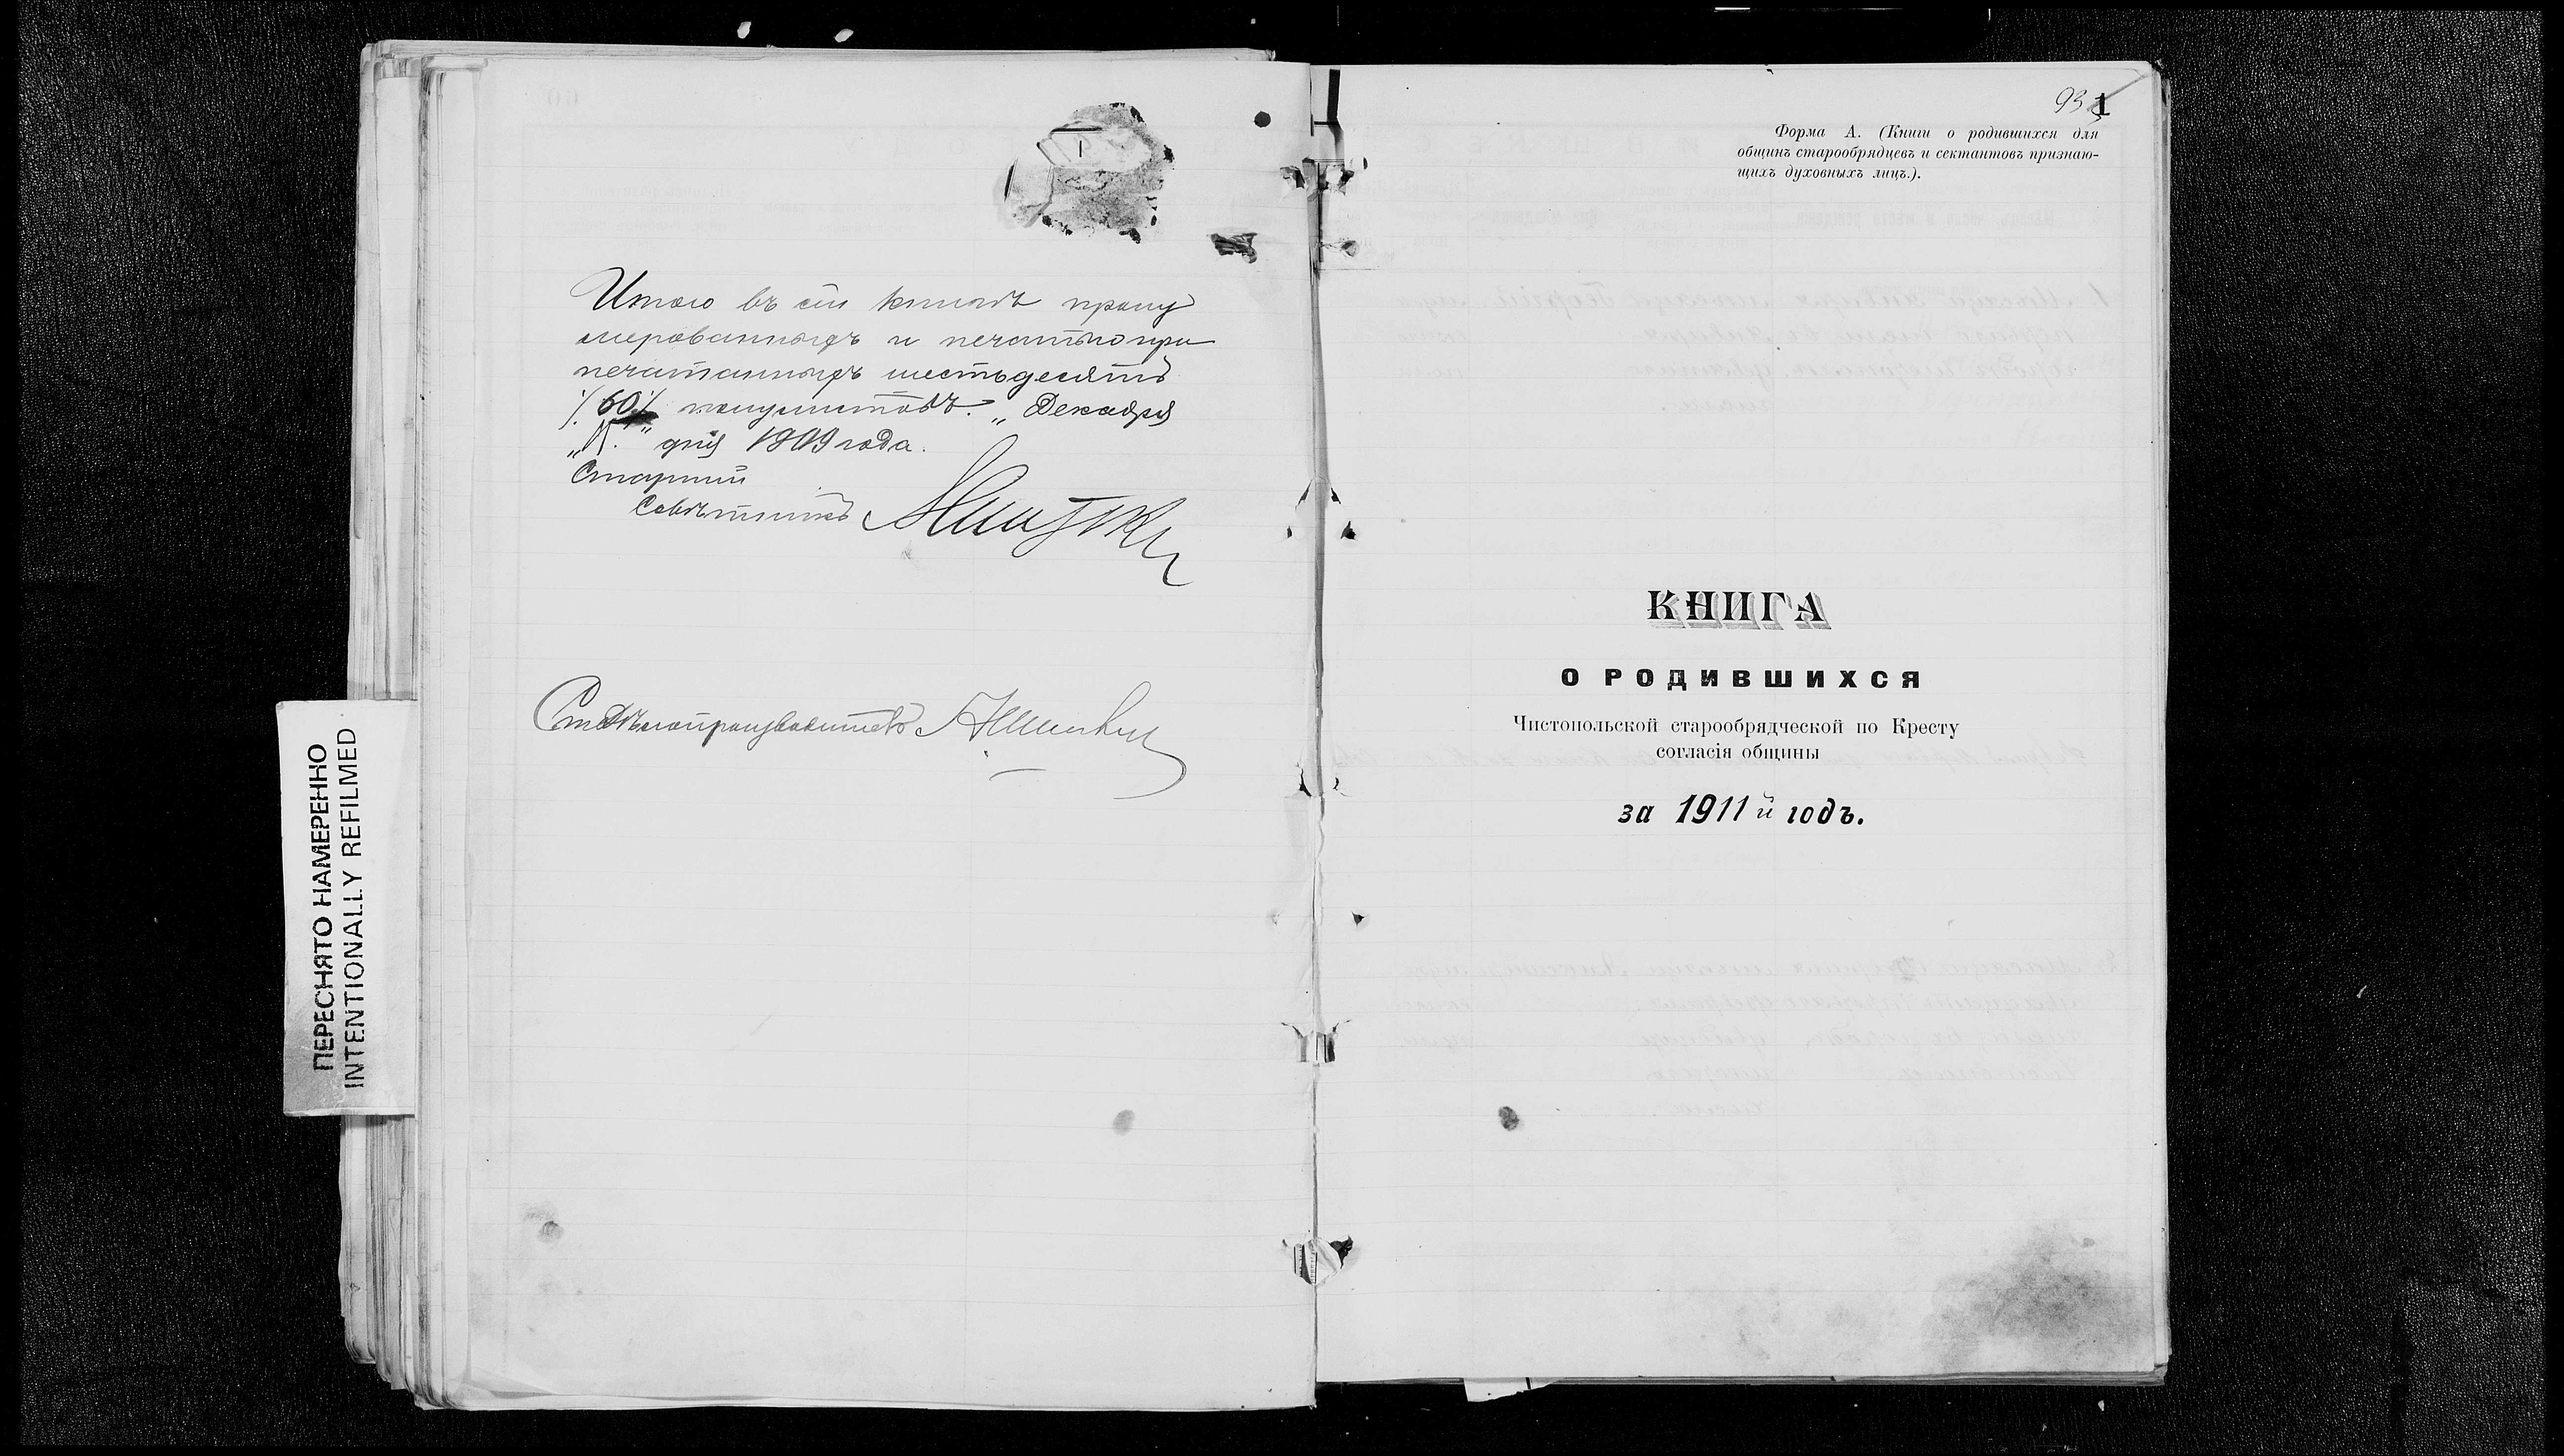 Итого въ сей книгѣ прону
мерованныхъ и печатью при
печатанныхъ шестьдесятъ
/60/ полулистовъ. „ Декабря
„ дня 1909 года.
Старшій
Совѣтникъ
Ст. Дѣлопроизводитель
ПЕРЕСНЯТО НАМЕРЕННО
INTENTIONALLY REFILMED
93 1
Форма А. (Книги о родившихся для
общинъ старообрядцевъ и сектантовъ признаю-
щихъ духовныхъ лицъ.).
КНИГА
О РОДИВШИХСЯ
Чистопольской старообрядческой по Кресту
согласія общины
за 1911й годъ.